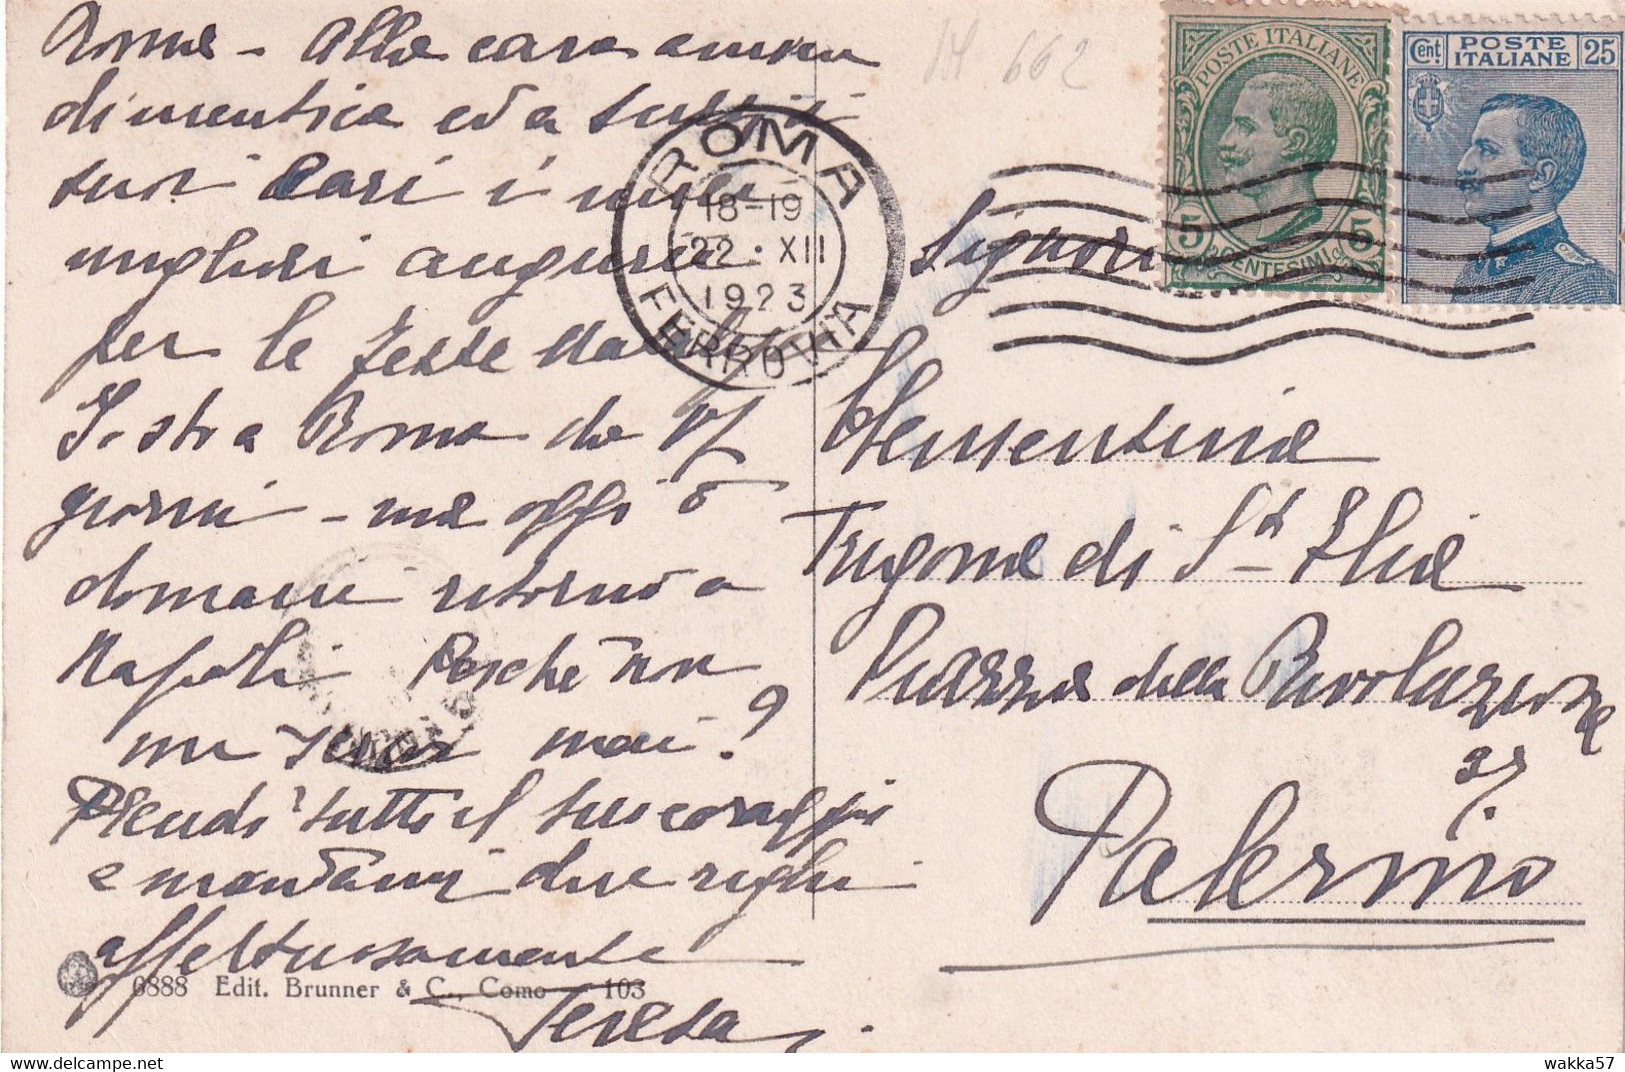 Roma - Alla cara amica
dimentica ed a tutti i
suoi cari i miei
migliori auguri
per le feste Natalizie
Sosto a Roma da
giorni - ma oggi o
domani ritorno a
Napoli Perché non
mai?
Prendi tutto il tuo coraggio
e mandami due righe
affettuosamente
Teresa
0888 Edit. Brunner & C., Como 103
662
ROMA
18-19
22 · XII
1923
FERROVIA
POSTE ITALIANE
5 CENTESIMI 5
Cent. POSTE ITALIANE 25
Signora
Clementina
Trigona di St Elia
Piazza della Rivoluzione
Palermo
wakka57